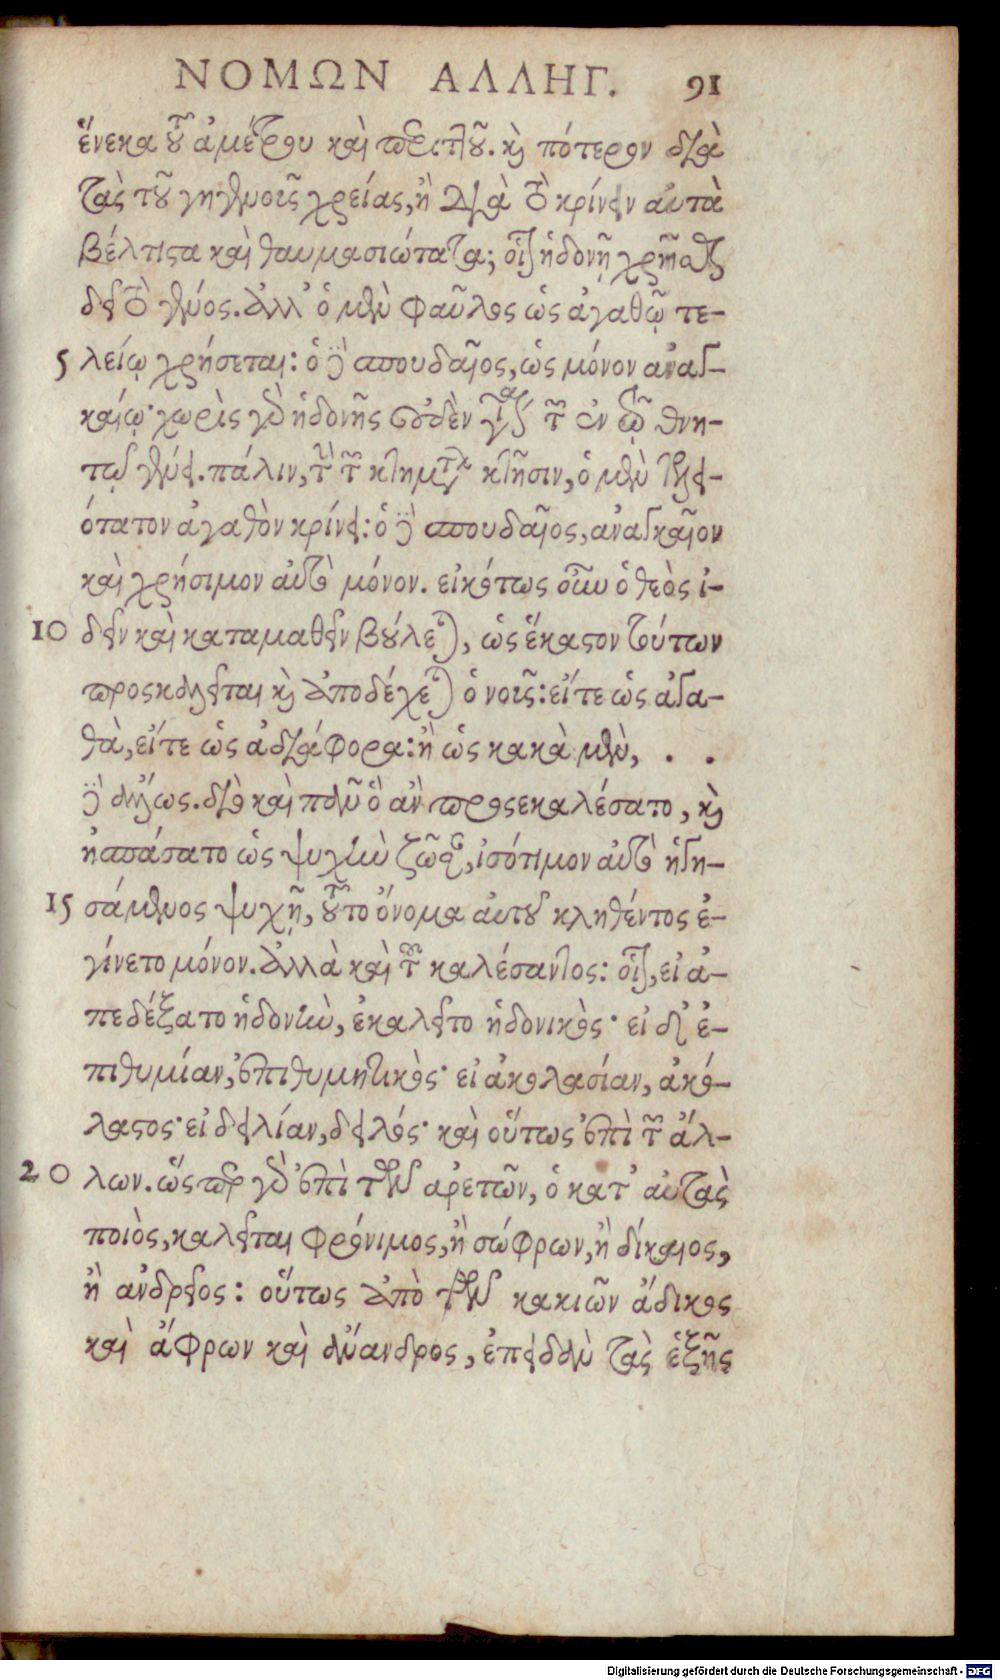 ΝΟΜΩΝ ΑΛΛΗΓ. 91
ἕνεκα τοῦ ἀμέτρου καὶ περιττοῦ. καὶ πότερον διὰ
τὰς τοῦ γηγενοῦς χρείας, ἢ διὰ τὸ κρίνειν αὐτὰ
βέλτιστα καὶ θαυμασιώτατα; οἷον ἡδονῇ χρῆσθαι
δεῖ τὸ γένος. ἀλλ' ὁ μὲν φαῦλος ὡς ἀγαθῷ τε-
5 λείῳ χρήσεται: ὁ δὲ σπουδαῖος, ὡς μόνον ἀναγ-
καίῳ· χωρὶς γὰρ ἡδονῆς οὐδὲν γίνεται τῶν ἐν τῷ θνη-
τῷ γένει. πάλιν, τὴν τῶν κτημάτων κτῆσιν, ὁ μὲν τελει-
ότατον ἀγαθὸν κρίνει: ὁ δὲ σπουδαῖος, ἀναγκαῖον
καὶ χρήσιμον αὐτὸ μόνον. εἰκότως οὖν ὁ θεὸς ἰ-
10 δεῖν καὶ καταμαθεῖν βούλεται, ὡς ἕκαστον τούτων
προσκαλεῖται καὶ ἀποδέχεται ὁ νοῦς: εἴτε ὡς ἀγα-
θὰ, εἴτε ὡς ἀδιάφορα: ἢ ὡς κακὰ μὲν, . .
δὲ ἄλλως. διὸ καὶ πᾶν ὃ ἂν προσεκαλέσατο, καὶ
ἠσπάσατο ὡς ψυχὴν ζῶσαν, ἰσότιμον αὐτὸ ἡγη-
15 σάμενος ψυχῇ, τοῦτο ὄνομα αὐτοῦ κληθέντος ἐ-
γίνετο μόνον. ἀλλὰ καὶ τοῦ καλέσαντος: οἷον, εἰ ἀ-
πεδέξατο ἡδονὴν, ἐκαλεῖτο ἡδονικός· εἰ δὲ ἐ-
πιθυμίαν, ἐπιθυμητικός· εἰ ἀκολασίαν, ἀκό-
λαστος· εἰ δειλίαν, δειλός· καὶ οὕτως ἐπὶ τῶν ἄλ-
20 λων. ὥσπερ γὰρ ἐπὶ τῶν ἀρετῶν, ὁ κατ' αὐτὰς
ποιὸς, καλεῖται φρόνιμος, ἢ σώφρων, ἢ δίκαιος,
ἢ ἀνδρεῖος: οὕτως ἀπὸ τῶν κακιῶν ἄδικος
καὶ ἄφρων καὶ ἄνανδρος, ἐπειδὰν τὰς ἑξῆς
Digitalisierung gefördert durch die Deutsche Forschungsgemeinschaft - DFG